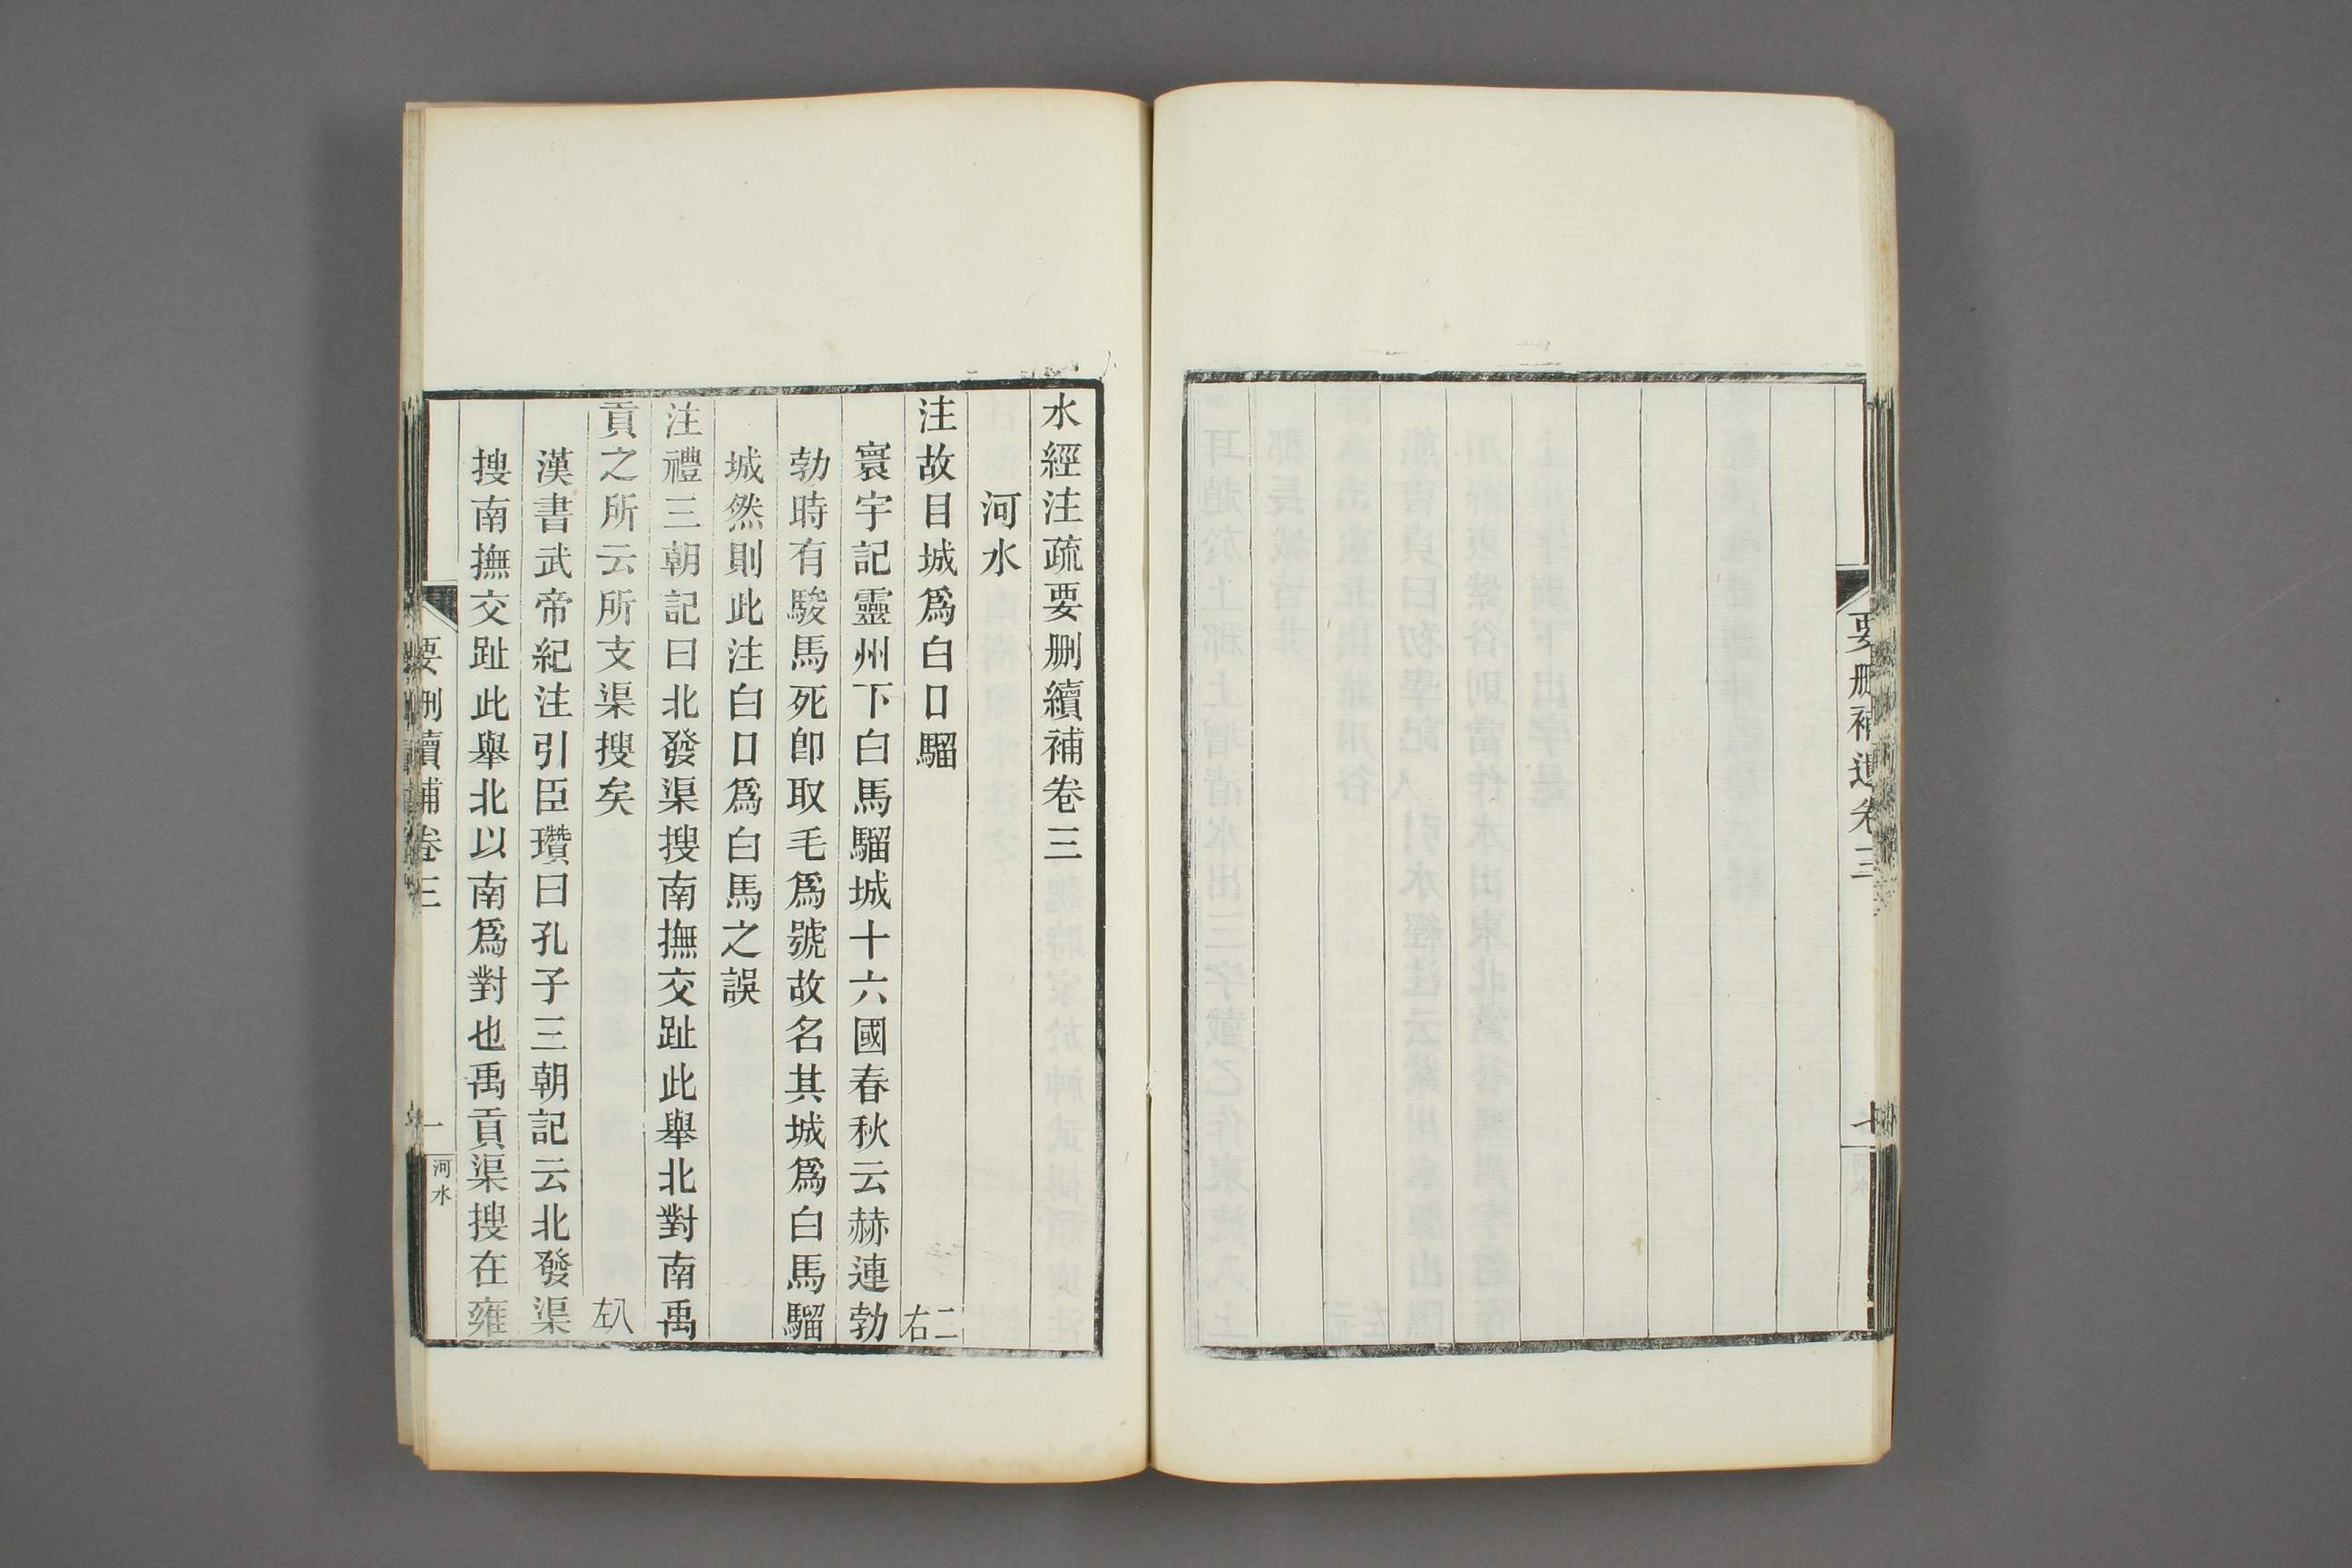 要刪補遺卷三
水經注疏要刪續補卷三
河水
注故目城爲白口騮 二右
寰宇記靈州下白馬騮城十六國春秋云赫連勃
勃時有駿馬死卽取毛爲號故名其城爲白馬騮
城然則此注白口爲白馬之誤
注禮三朝記曰北發渠搜南撫交趾此舉北對南禹
貢之所云所支渠搜矣 八左
漢書武帝紀注引臣瓚曰孔子三朝記云北發渠
搜南撫交趾此舉北以南爲對也禹貢渠搜在雍
要刪續補卷三
一
河水